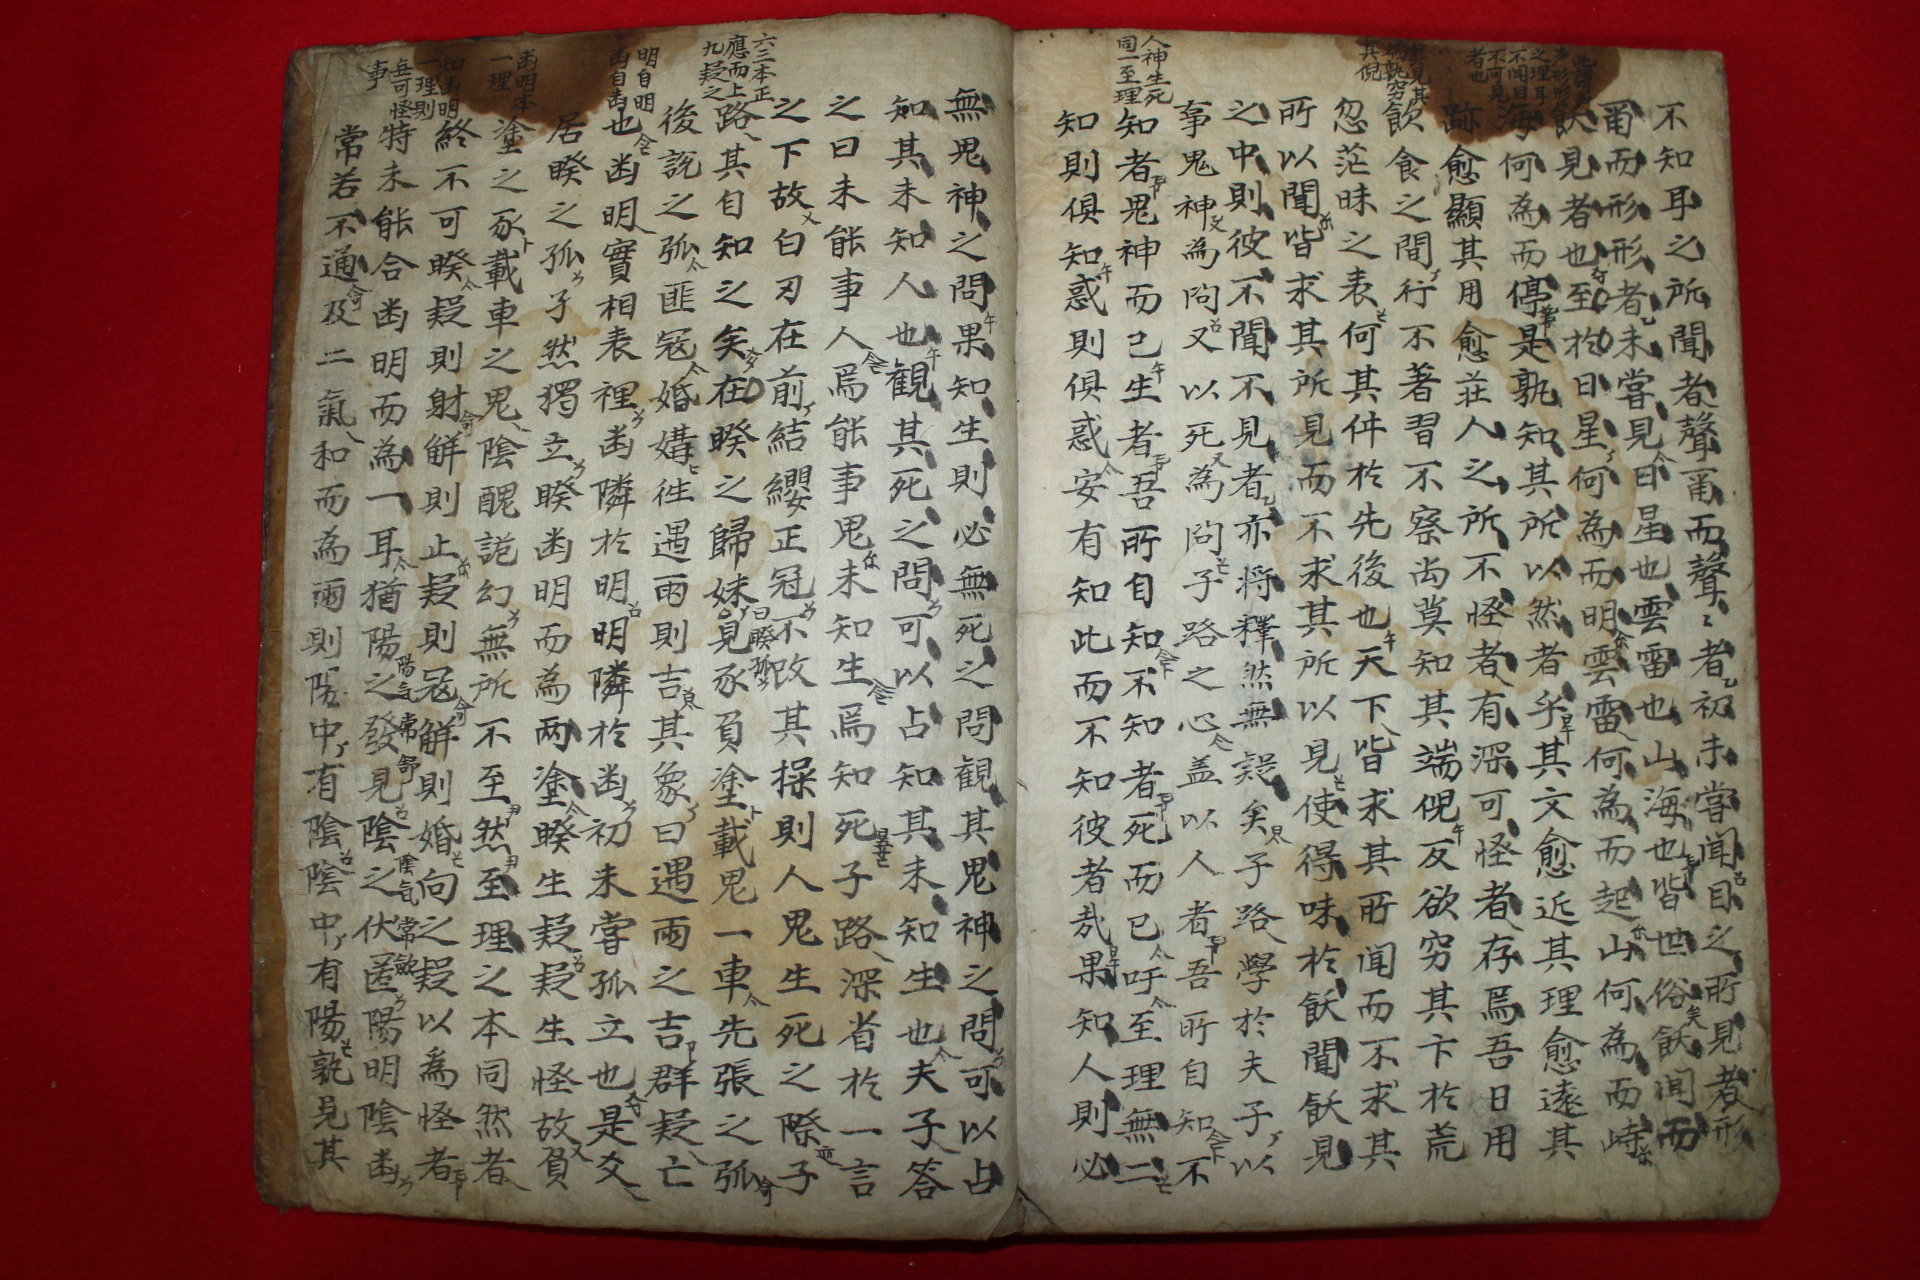 不知耳之所聞者聲甭而聲〻者初未嘗聞目之所見者形
甭而形形者未嘗見日星也雲雷也山海也皆世俗飫聞而
飫見者也至於日星何為而明雲雷何為而起山何為而峙
海何為而停是孰知其所以然者乎其文愈近其理愈遠其
跡愈顯其用愈莊人之所不怪者有深可怪者存焉吾日用
飲食之間行不著習不察尚莫知其端倪反欲穷其卞於荒
忽茫昧之表何其件於先後也天下皆求其所聞而不求其
所以聞皆求其所見而不求其所以見使得味於飫聞飫見
之中則彼不聞不見者亦将釋然無疑矣子路學於夫子以
事鬼神為问又以死為问子路之心盖以人者吾所自知不
知者鬼神而已生者吾所自知不知者死而已吁至理無二
知則俱知惑則俱惑安有知此而不知彼者㢤果知人則必
無鬼神之問果知生則必無死之問觀其鬼神之問可以占
知其未知人也觀其死之問可以占知其未知生也夫子答
之曰未能事人焉能事鬼未知生焉知死子路深省於一言
之下故白刃在前結纓正冠不改其操則人鬼生死之際子
路其自知之矣在睽之歸妹曰睽孤見豕負塗載鬼一車先張之弧
後說之弧匪冦婚媾徃遇雨則吉其象曰遇雨之吉群疑亡
也幽明實相表裡幽隣於明明隣於幽初未嘗孤立也是爻
居睽之孤孑然獨立睽幽明而為两塗睽生疑疑生怪故負
塗之豕載車之鬼陰醜詭幻無所不至然至理之本同然者
終不可睽疑則射觧則止疑則冦觧則婚向之疑以爲怪者
特未能合幽明而為一耳猶陽之發見陰之伏匿陽明陰幽
常若不通及二氣和而為雨則陽中有陰陰中有陽孰見其
人神生死
同一至理
六三本正
應而上
九疑之
明自明
幽自幽
幽明本
一理
知幽明
一理則
無可怪
事
陽氣常舒
陰氣常歛